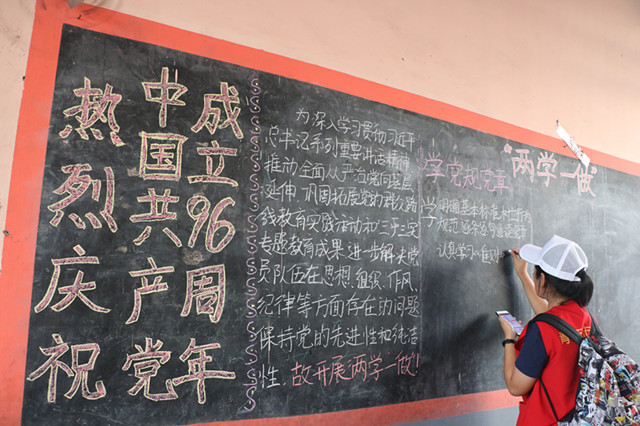 热烈庆祝
中国共产党
成立96周年
为深入学习贯彻习近平
总书记系列重要讲话精神
推动全面从严治党向基层
延伸，巩固拓展党的群众路
线教育实践活动和“三严三实”
专题教育成果，进一步解决党
员队伍在思想、组织、作风、
纪律等方面存在的问题
保持党的先进性和纯洁
性，故开展“两学一做”！
“两学一做”
学党规党章
学
明确基本标准、树立行为
规范
认真学习